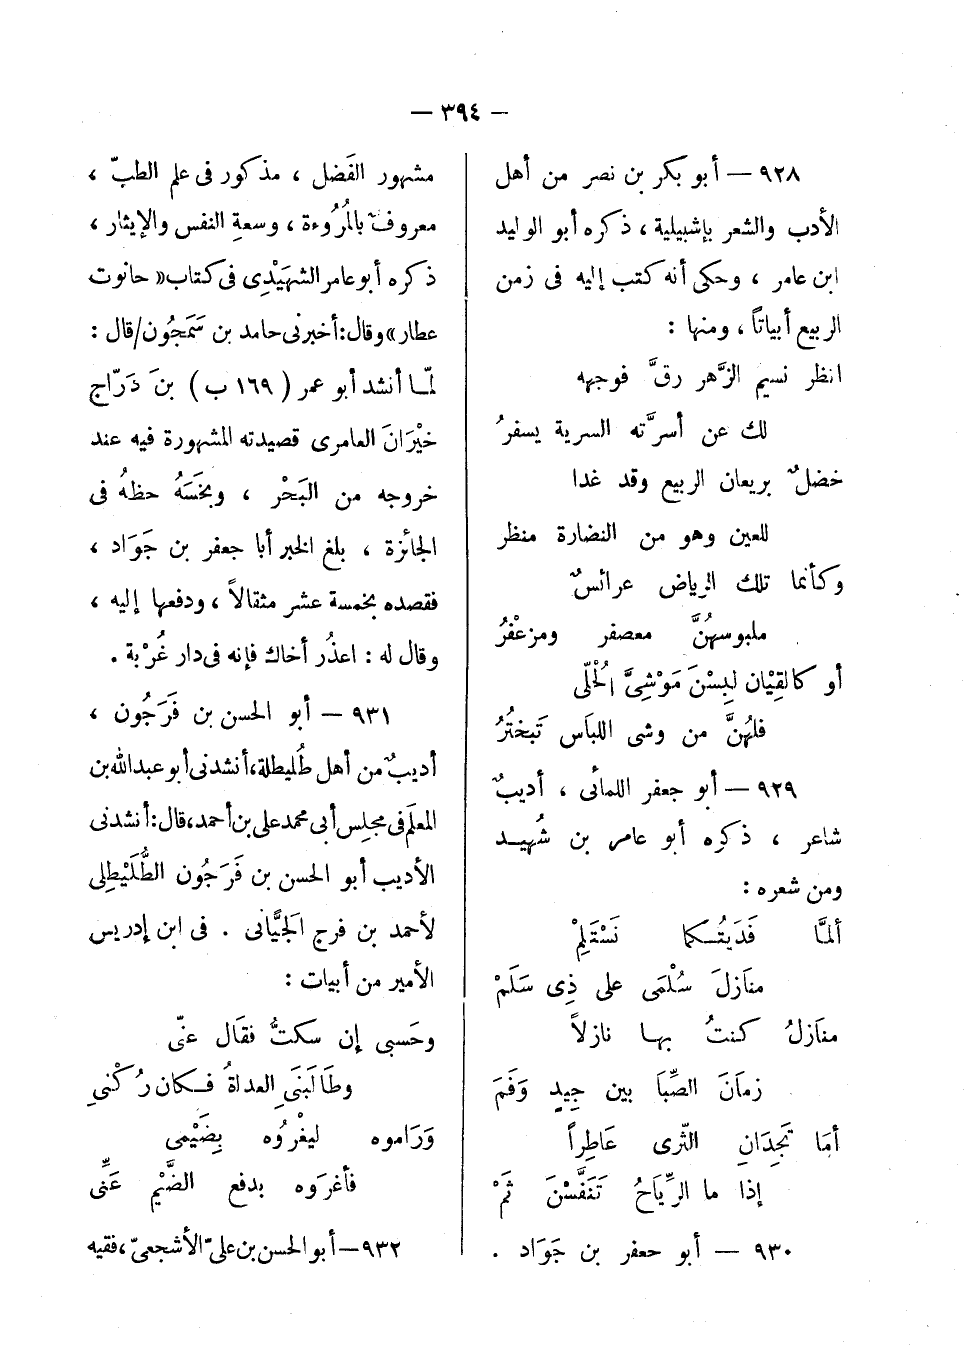 — ٣٩٤ —
٩٢٨ — أبو بكر بن نصر من أهل
الأدب والشعر بإشبيلية ، ذكره أبو الوليد
ابن عامر ، وحكى أنه كتب إليه فى زمن
الربيع أبياتاً ، ومنها :
انظر نسيم الزَّهر رقَّ فوجهه
لك عن أسرَّته السرية يسفرُ
خضلٌ بريعان الربيع وقد غدا
للعين وهو من النضارة منظر
وكأنما تلك الرياض عرائسٌ
ملبوسهُنَّ معصفر ومزعْفرُ
أو كالقِيْان لبِسْنَ مَوْشِىَّ الحُلّى
فلهُنَّ من وشى اللبَاس تَبخترُ
٩٢٩ — أبو جعفر اللمائى ، أديبٌ
شاعر ، ذكره أبو عامر بن شُهيد
ومن شعره :
ألمَّا فَدَيتُكما نَسْتَلِمْ
منَازلَ سُلْمَى على ذِى سَلَمْ
منَازلُ كنتُ بها نازلاً
زمَانَ الصِّبَا بين جِيدٍ وَفَمَ
أمَا تَجِدَانِ الثّرى عَاطِراً
إذا ما الرِّيَاحُ تَنَفَّسْنَ ثَمْ
٩٣٠ — أبو جعفر بن جَوَاد .
مشهور الفَضل ، مذكور فى علم الطبّ ،
معروفٌ بالمُرُوءة ، وسعةِ النفس والإيثار ،
ذكره أبو عامر الشهَيْدِى فى كتاب « حانوت
عطار » وقال : أخبرنى حامد بن سَمَجُون/قال :
لمّا أنشد أبو عمر ( ١٦٩ ب ) بنَ دَرّاج
خيْرَانَ العامرى قصيدته المشهورة فيه عند
خروجه من البَحْر ، وبخَسَهُ حظهُ فى
الجائزة ، بلغ الخبر أبا جعفر بن جَوَاد ،
فقصده بخمسة عشر مثقالاً ، ودفعها إليه ،
وقال له : اعذُر أخاك فإنه فى دار غُرْبة .
٩٣١ — أبو الحسن بن فَرَجُون ،
أديبٌ من أهل طُليطلة ، أنشدنى أبو عبد الله بن
المعلم فى مجلِس أبى محمد على بن أحمد ، قال : أنشدنى
الأديب أبو الحسن بن فَرَجُون الطُّلَيْطِلى
لأحمد بن فرج الجَيَّانى . فى ابن إدريس
الأمير من أبيات :
وحَسبى إن سكتُّ فقَال عنّى
وطَالَبَنىَ العداةُ فكان رُكْنىِ
وَرَاموه ليغْرُوه بِضَيْمى
فأغرَوه بدفع الضَّيْم عَنِّى
٩٣٢ — أبو الحسن بن علىّ الأشجعىّ ، فقيه